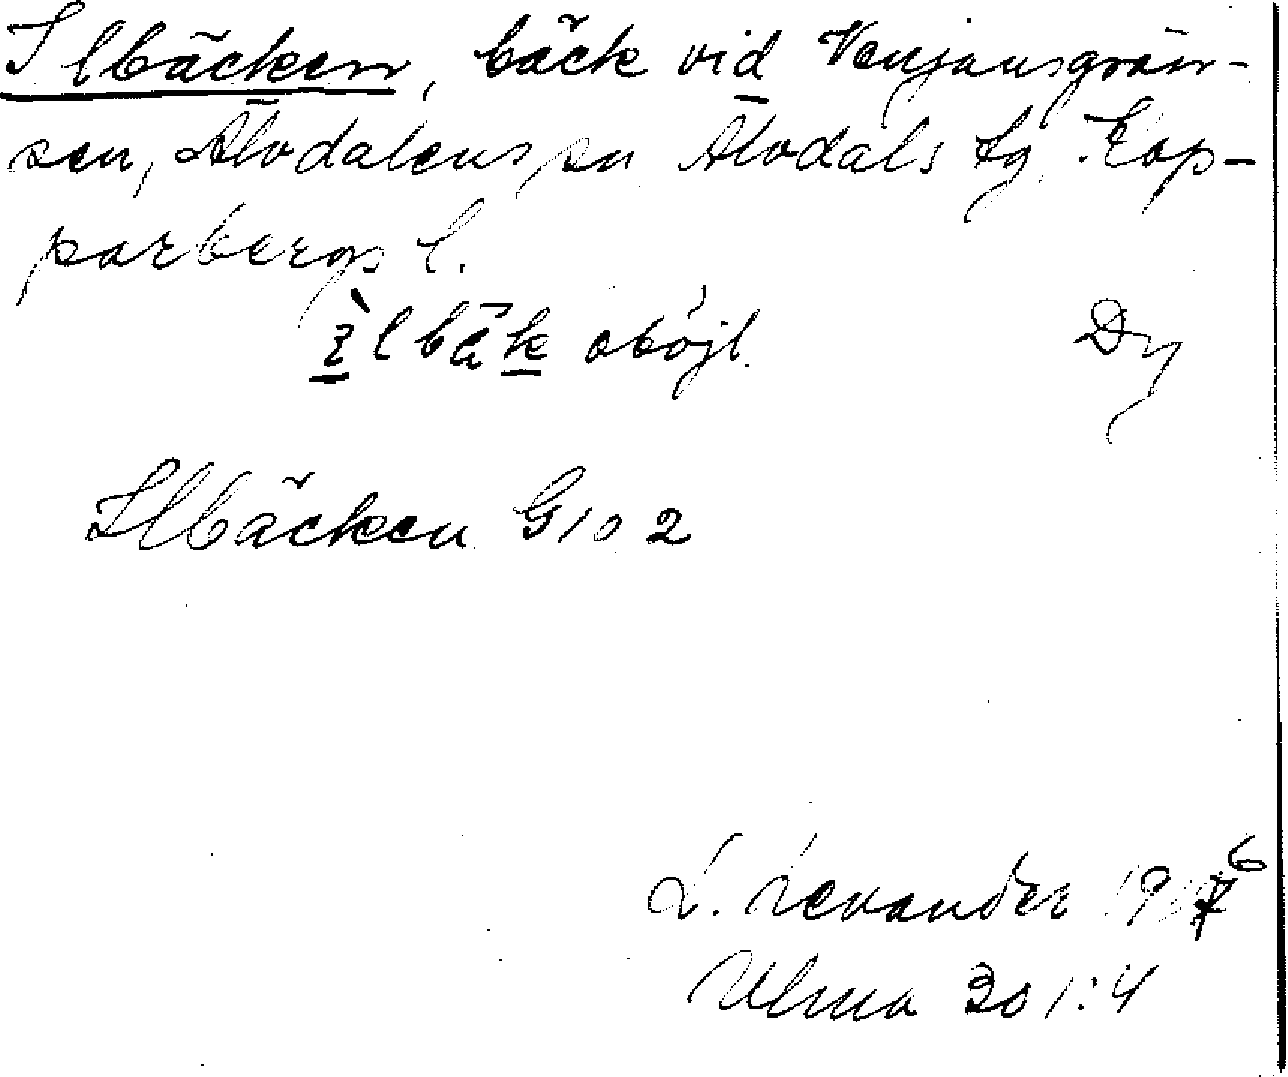 Ilbäcken, bäck vid Venjansgrän-
sen, Älvdalens sn Älvdals tg Kop-
parbergs l.
ìlbäk oböjl. Dy
Ilbäcken G 102
L. Levander 1916
Ulma 301:4